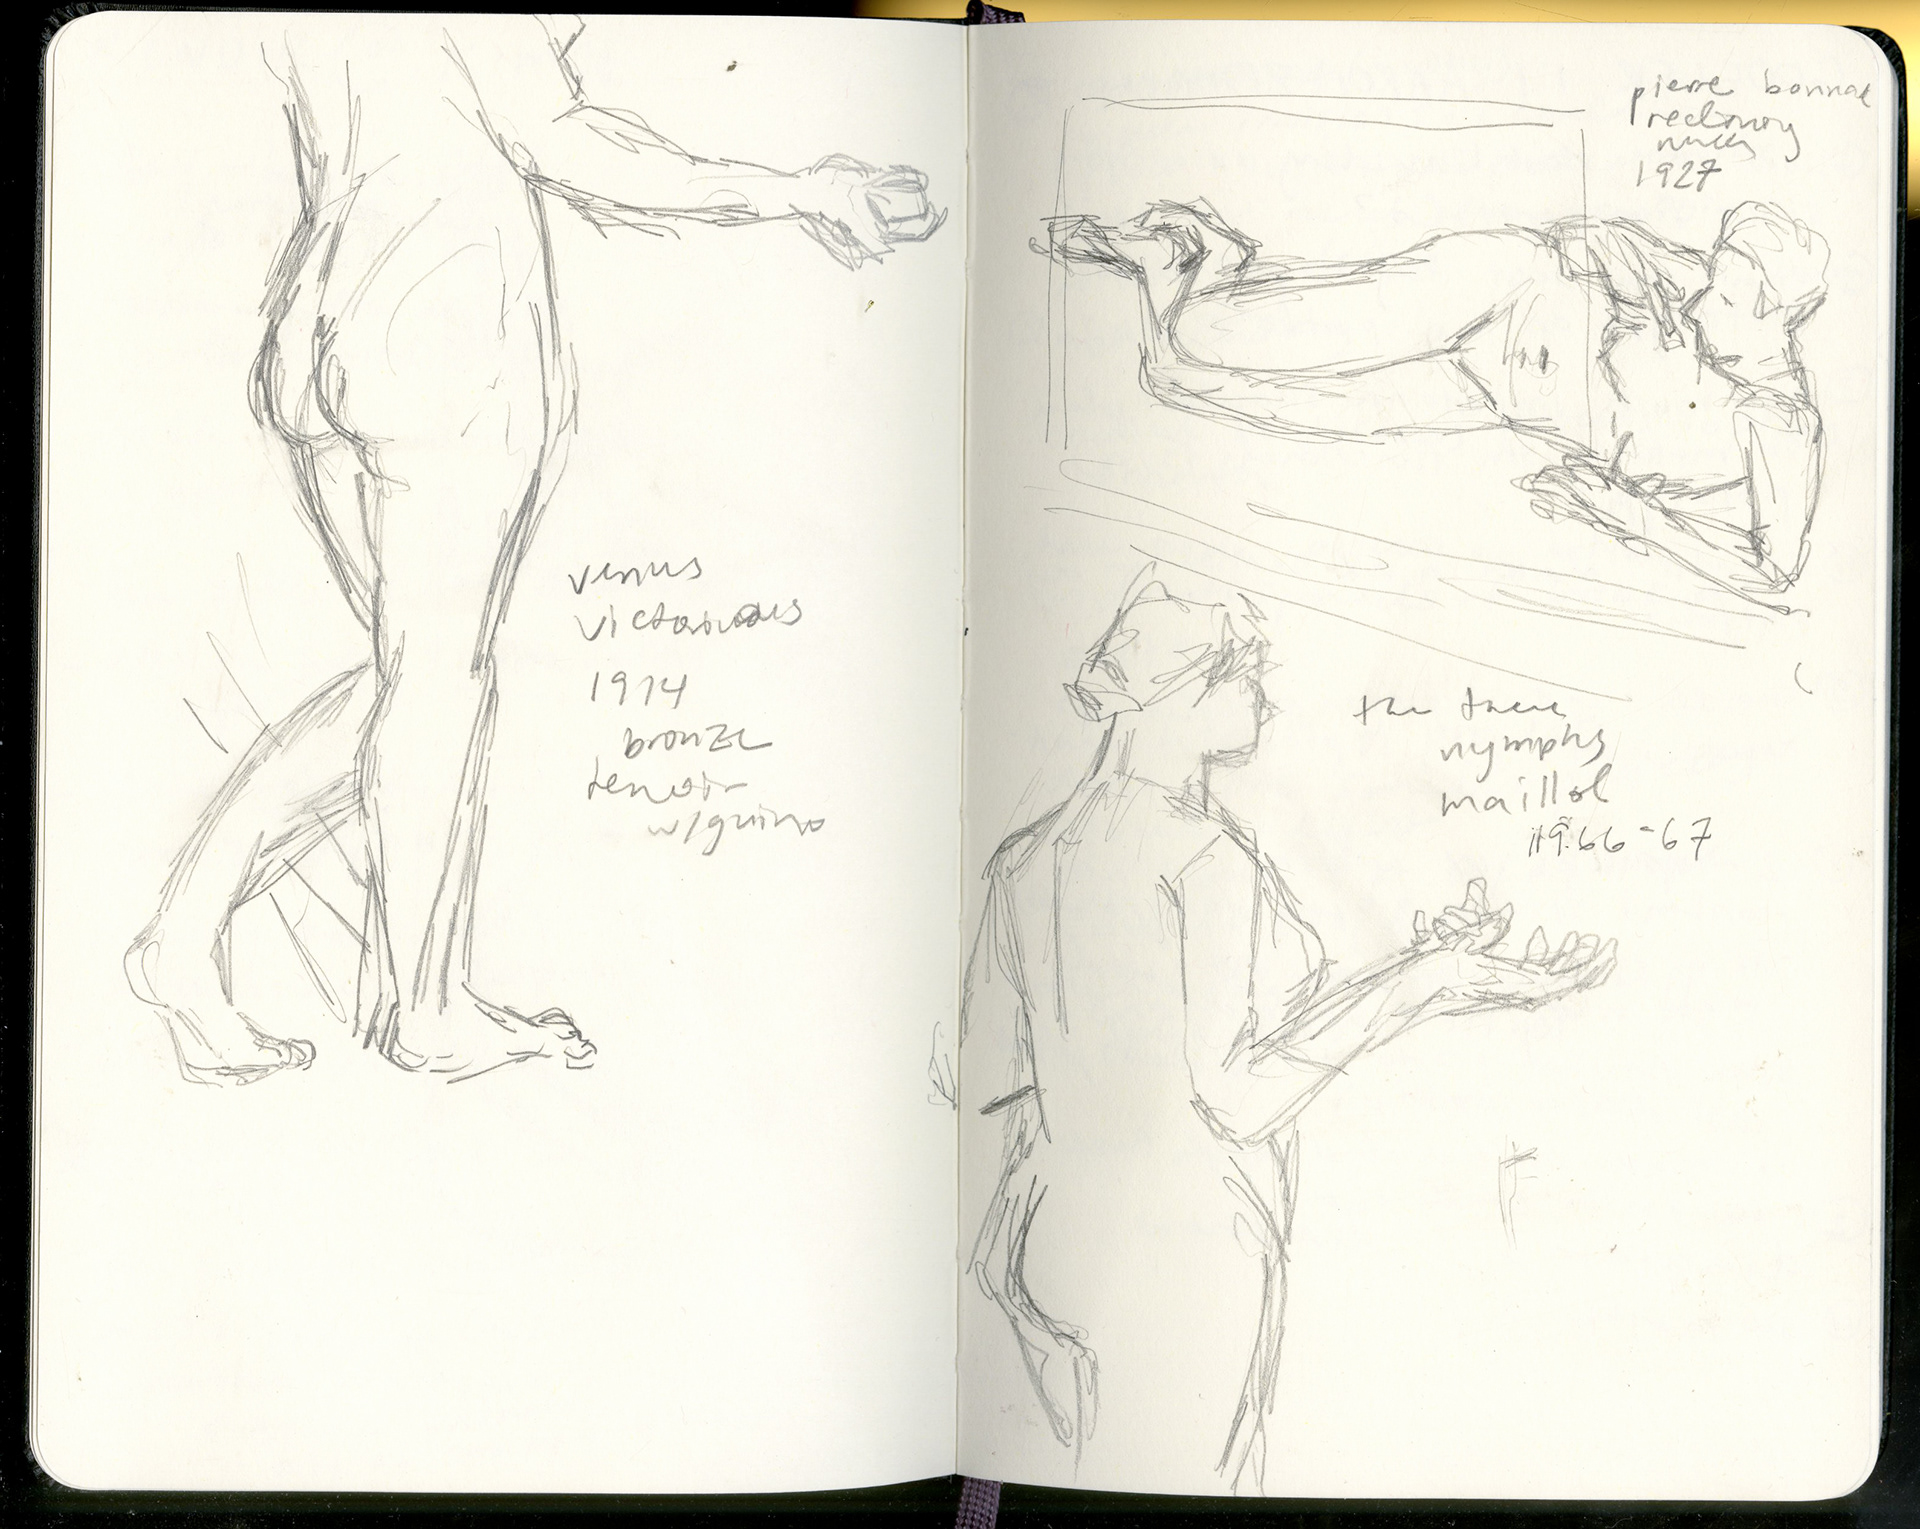 venus
victorious
1914
bronze
renoir
w/guino
pierre bonnar
reclining
1927
the three
nymphs
maillol
1966-67